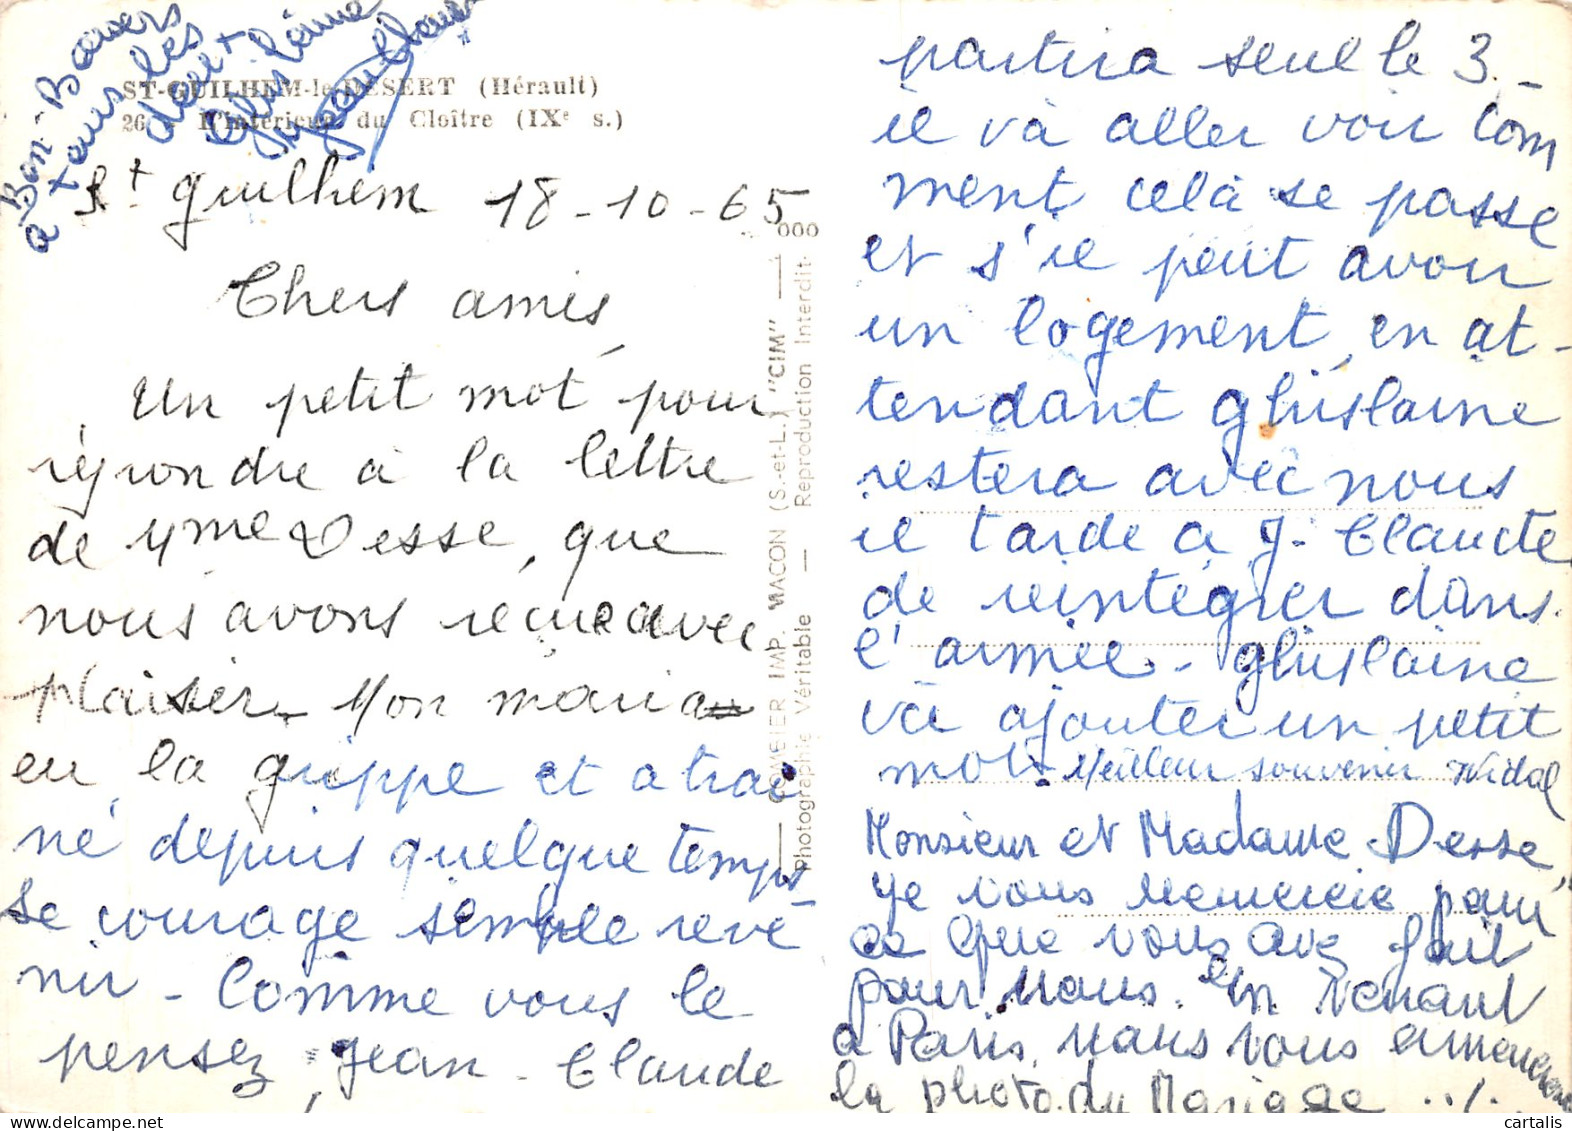 Bon Baisers
à tous les
deux
Ghislaine
Jean Claude
ST-GUILHEM-le-DÉSERT (Hérault)
26 - L'intérieur du Cloître (IXe s.)
St Guilhem 18-10-65
Chers amis,
Un petit mot pour
répondre à la lettre
de Mme Desse, que
nous avons reçue avec
plaisir. Mon mari a
eu la grippe et a trai
né depuis quelque temps
le courage semble reve-
nir - Comme vous le
pensez, Jean-Claude
COMBIER IMP. MACON (S.-et-L.) "CIM"
Photographie Véritable — Reproduction Interdite
000
partira seul le 3 -
il va aller voir com
ment celà se passe
et s'il peut avoir
un logement, en at-
tendant Ghislaine
restera avec nous
il tarde à J-Claude
de reintégrer dans
l'armée - Ghislaine
va ajouter un petit
mot. Meilleur souvenir Vidal
Monsieur et Madame Desse,
Je vous remercie pour
ce que vous avez fait
pour nous. En venant
à Paris, nous vous emmènerons
la photo du Mariage ../.
cartalis